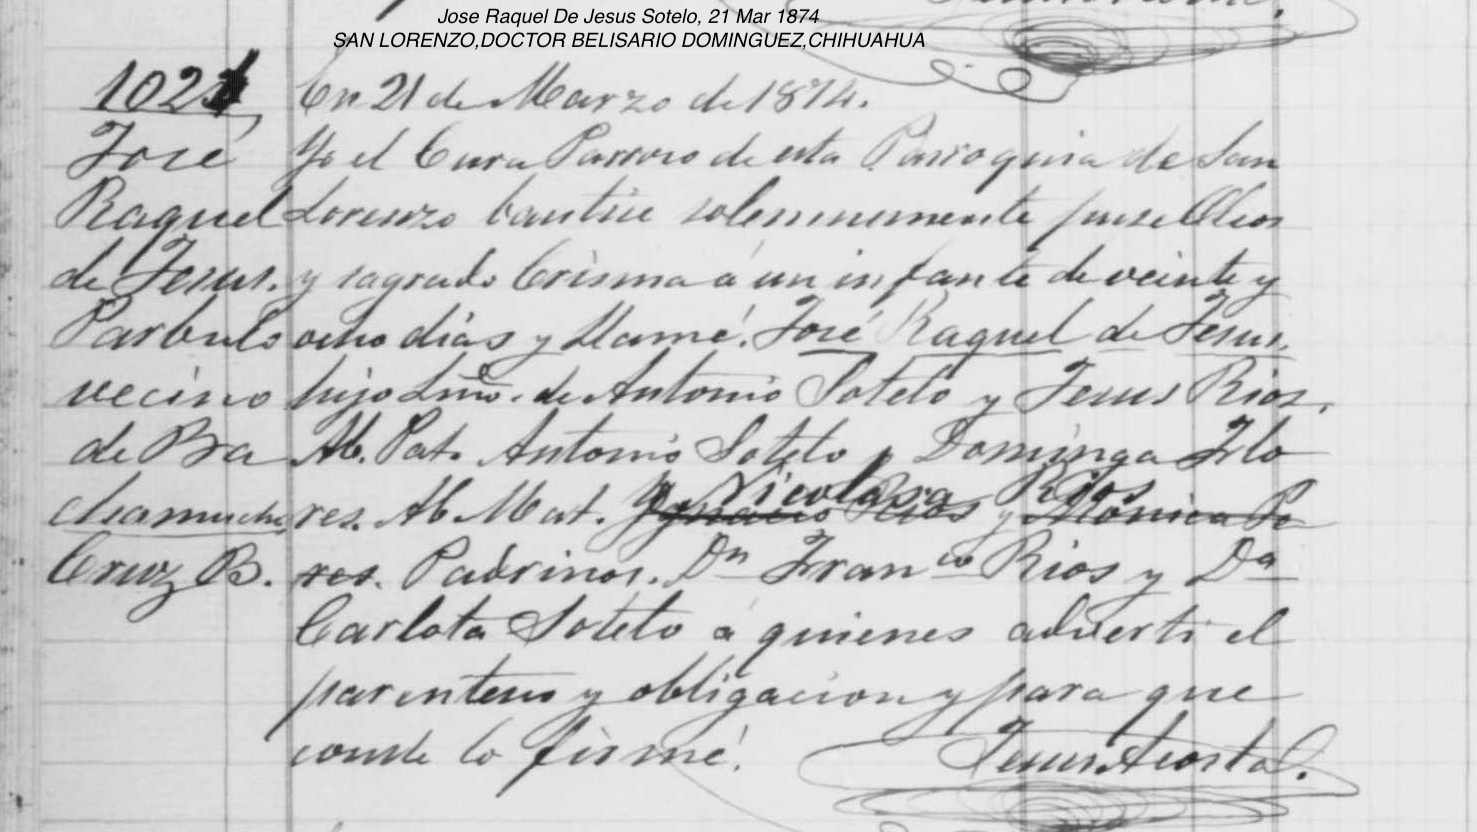 Jose Raquel De Jesus Sotelo, 21 Mar 1874
SAN LORENZO,DOCTOR BELISARIO DOMINGUEZ,CHIHUAHUA
102
José
Raquel
de Jesus.
Parbulo
vecino
de Bra
chamuchi
Cruz B.
En 21 de Marzo de 1874.
Yo el Cura Parroco de esta Parroquia de San
Lorenzo bautice solemnemente puse Oleos
y sagrado Crisma á un infante de veinte y
ocho dias y llamé. José Raquel de Jesus.
hijo Lmo. de Antonio Sotelo y Jesus Rios.
Ab. Pat. Antonio Sotelo y Dominga Flo
res. Ab. Mat. Ygnacio Rios y Monica Po
y Nicolasa Rios
res. Padrinos. Dn Franco Rios y Da
Carlota Sotelo á quienes adverti el
parentesco y obligacion y para que
conste lo firmé.
Jesus Acosta.